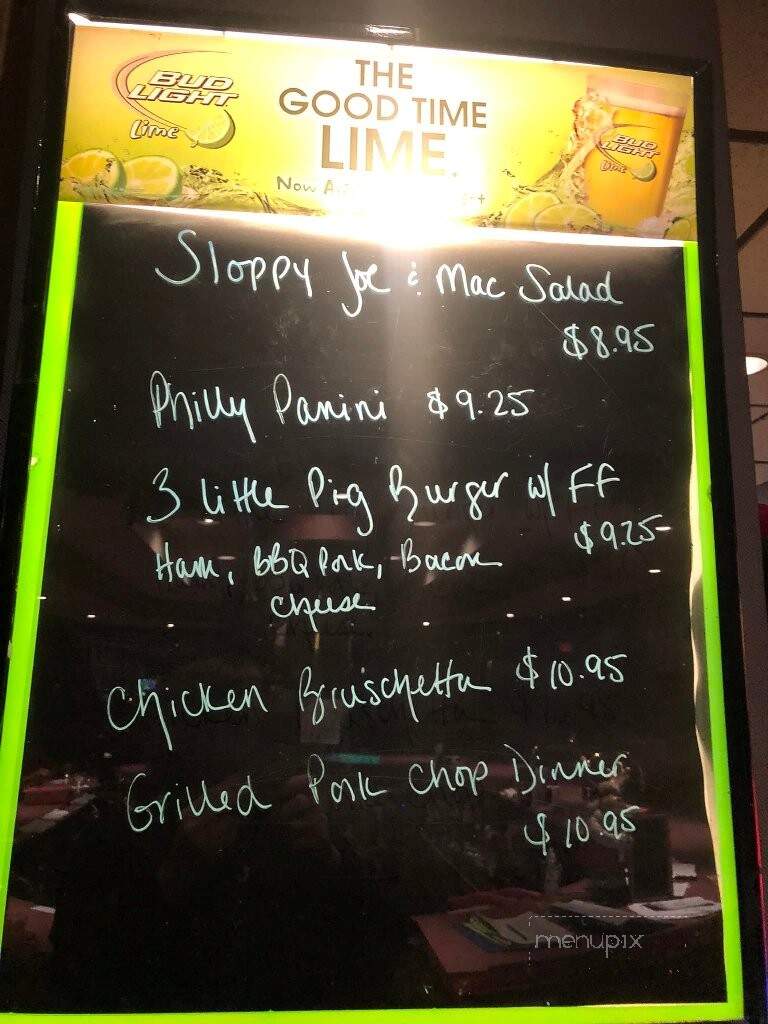 BUD
LIGHT
Lime
THE
GOOD TIME
LIME.
Now
BUD
LIGHT
Lime
Sloppy Joe & Mac Salad
$8.95
Philly Panini $9.25
3 Little Pig Burger w/ FF
$9.25
Ham, BBQ Pork, Bacon
cheese
Chicken Bruischetta $10.95
Grilled Pork Chop Dinner
$10.95
menupix